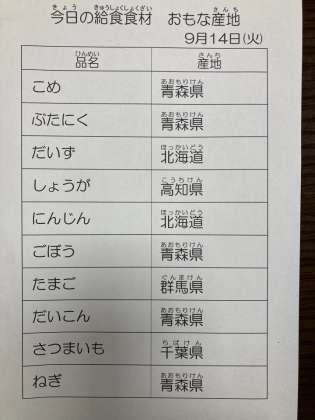 今日の給食食材 おもな産地
9月14日(火)
品名 産地
こめ 青森県
ぶたにく 青森県
だいず 北海道
しょうが 高知県
にんじん 北海道
ごぼう 青森県
たまご 群馬県
だいこん 青森県
さつまいも 千葉県
ねぎ 青森県